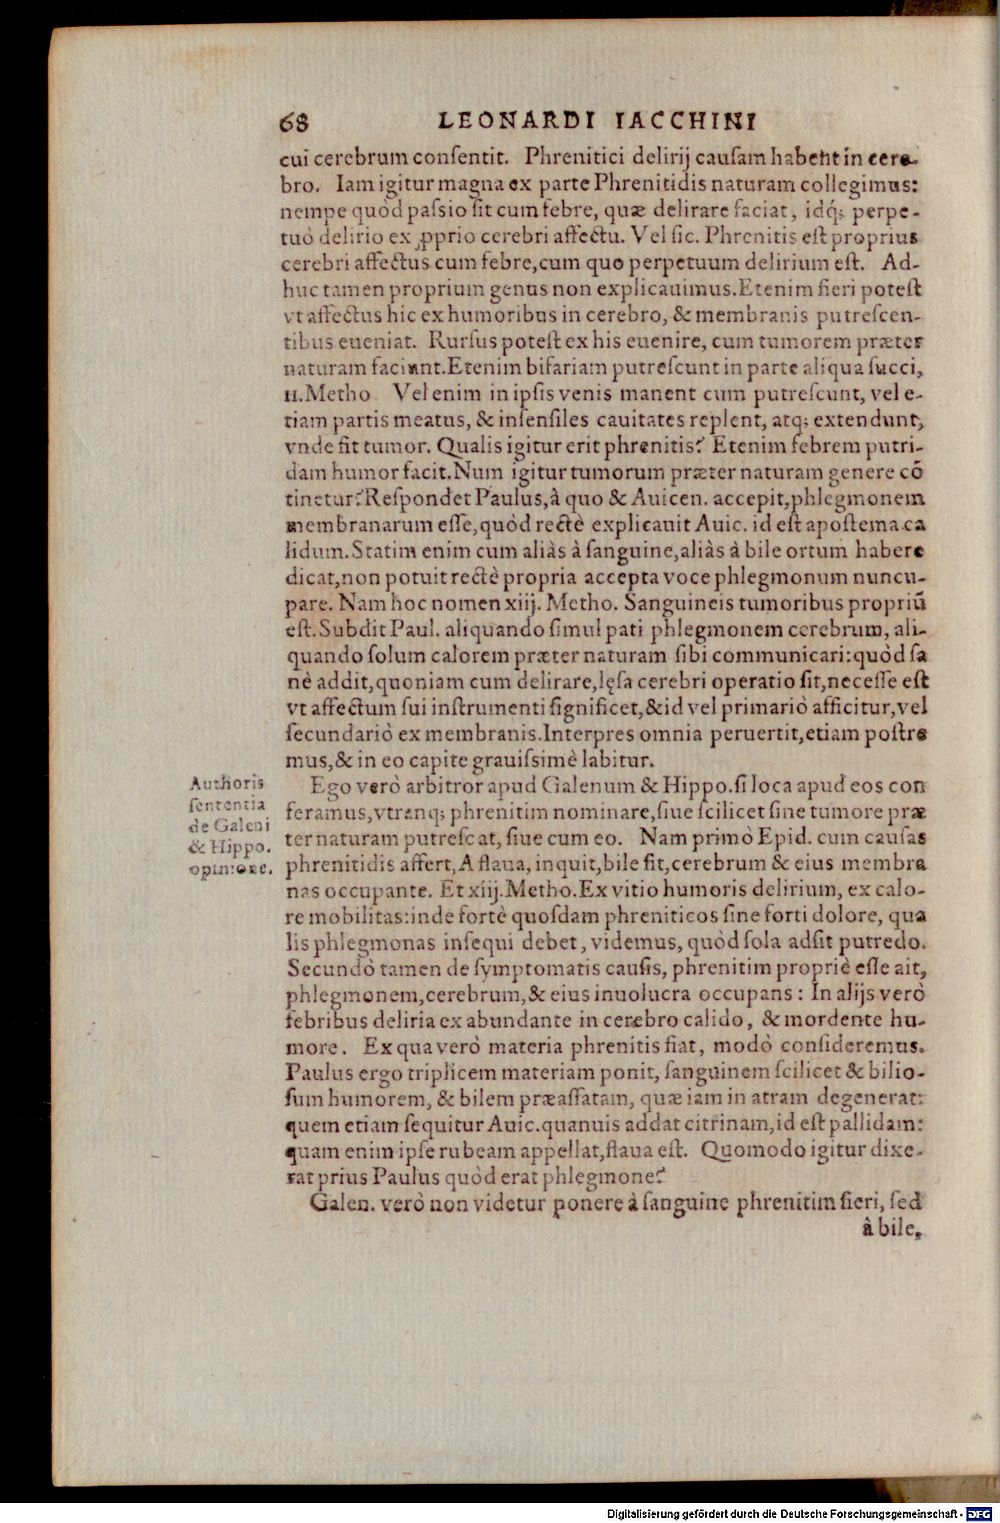 68 LEONARDI IACCHINI
cui cerebrum conſentit. Phrenitici delirij cauſam habent in cere-
bro. Iam igitur magna ex parte Phrenitidis naturam collegimus:
nempe quòd paſsio ſit cum febre, quæ delirare faciat, idq́; perpe-
tuò delirio ex ꝓprio cerebri affectu. Vel ſic. Phrenitis eſt proprius
cerebri affectus cum febre,cum quo perpetuum delirium eſt. Ad-
huc tamen proprium genus non explicauimus.Etenim fieri poteſt
vt affectus hic ex humoribus in cerebro, & membranis putreſcen-
tibus eueniat. Rurſus poteſt ex his euenire, cum tumorem præter
naturam faciunt.Etenim bifariam putreſcunt in parte aliqua ſucci,
11.Metho Vel enim in ipſis venis manent cum putreſcunt, vel e-
tiam partis meatus, & inſenſiles cauitates replent, atq; extendunt,
vnde fit tumor. Qualis igitur erit phrenitis? Etenim febrem putri-
dam humor facit.Num igitur tumorum præter naturam genere cō
tinetur?Reſpondet Paulus,à quo & Auicen. accepit,phlegmonem
membranarum eſſe,quòd rectè explicauit Auic. id eſt apoſtema ca
lidum.Statim enim cum aliàs à ſanguine,aliàs à bile ortum habere
dicat,non potuit rectè propria accepta voce phlegmonum nuncu-
pare. Nam hoc nomen xiij. Metho. Sanguineis tumoribus propriū
eſt.Subdit Paul. aliquando ſimul pati phlegmonem cerebrum, ali-
quando ſolum calorem præter naturam ſibi communicari:quòd ſa
nè addit,quoniam cum delirare,lęſa cerebri operatio ſit,neceſſe eſt
vt affectum ſui inſtrumenti ſignificet,&id vel primariò afficitur,vel
ſecundariò ex membranis.Interpres omnia peruertit,etiam poſtre
mus,& in eo capite grauiſsimè labitur.
Authoris
ſententia
de Galeni
& Hippo.
opinione.
Ego verò arbitror apud Galenum & Hippo.ſi loca apud eos con
feramus,vtranq; phrenitim nominare,ſiue ſcilicet ſine tumore præ
ter naturam putreſcat, ſiue cum eo. Nam primò Epid. cum cauſas
phrenitidis affert,A flaua, inquit,bile fit,cerebrum & eius membra
nas occupante. Et xiij.Metho.Ex vitio humoris delirium, ex calo-
re mobilitas:inde fortè quoſdam phreniticos ſine forti dolore, qua
lis phlegmonas inſequi debet, videmus, quòd ſola adſit putredo.
Secundò tamen de ſymptomatis cauſis, phrenitim propriè eſſe ait,
phlegmonem,cerebrum,& eius inuolucra occupans: In alijs verò
febribus deliria ex abundante in cerebro calido, & mordente hu-
more. Ex qua verò materia phrenitis fiat, modò conſideremus.
Paulus ergo triplicem materiam ponit, ſanguinem ſcilicet & bilio-
ſum humorem, & bilem præaſſatam, quæ iam in atram degenerat:
quem etiam ſequitur Auic.quanuis addat citrinam,id eſt pallidam:
quam enim ipſe rubeam appellat,flaua eſt. Quomodo igitur dixe-
rat prius Paulus quòd erat phlegmone?
Galen. verò non videtur ponere à ſanguine phrenitim fieri, ſed
à bile,
Digitalisierung gefördert durch die Deutsche Forschungsgemeinschaft - DFG